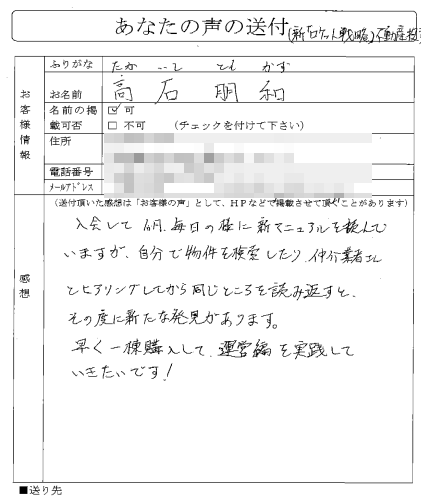 あなたの声の送付(新ロケット戦略)不動産投
ふりがな たか いし とも かず
お客様情報
お名前 高石 朋和
名前の掲載可否 ☑ 可
□ 不可 (チェックを付けて下さい)
住所
電話番号
メールアドレス
(送付頂いた感想は「お客様の声」として、HPなどで掲載させて頂くことがあります)
感想
入会して1カ月、毎日の様に新マニュアルを読んで
いますが、自分で物件を検索したり、仲介業者さん
とヒアリングしてから同じところを読み返すと、
その度に新たな発見があります。
早く一棟購入して、運営編を実践して
いきたいです!
■送り先